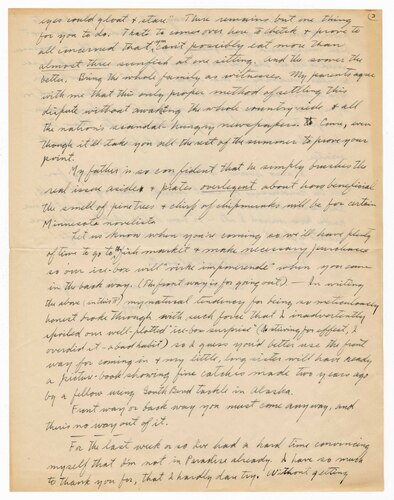 3
eyes could gloat & stare. There remains but one thing
for you to do. Thats to come over here to check & prove to
all concerned that, can't possibly eat more than
almost three at one sitting. And the sooner the
better. Bring the whole family as witnesses. My parents agree
with me that this only proper method of settling this
dispute without awaking the whole country side & all
the nation's scandal-hungry newspapers. Come, even
though it'll take you all the rest of the summer to prove your
point.
My father is so confident that he simply brushes the
real issue aside & prates about how beneficial
the smell of pine trees & chirp of chipmunks will be for certain
Minnesota novelists.
Let us know when you're coming so we'll have plenty
of time to go to fish market & make necessary purchases
so our ice-box will when you come
in the back way. (The front way is for going out) — In writing
the above (in this ) my natural tendency for being so meticulously
honest broke through with such force that I inadvertently
spoiled our well-plotted "ice-box surprise" (In striving for effect, I
overdid it - a bad habit) so I guess you'd better use the front
way for coming in & my little, long sister will have ready
a picture-book showing fine catches made two years ago
by a fellow using South Bend tackle in Alaska.
Front way or back way you must come anyway, and
there's no way out of it.
For the last week or so I've had a hard time convincing
myself that I'm not in Paradise already. I have so much
to thank you for, that I hardly dare try. Without getting